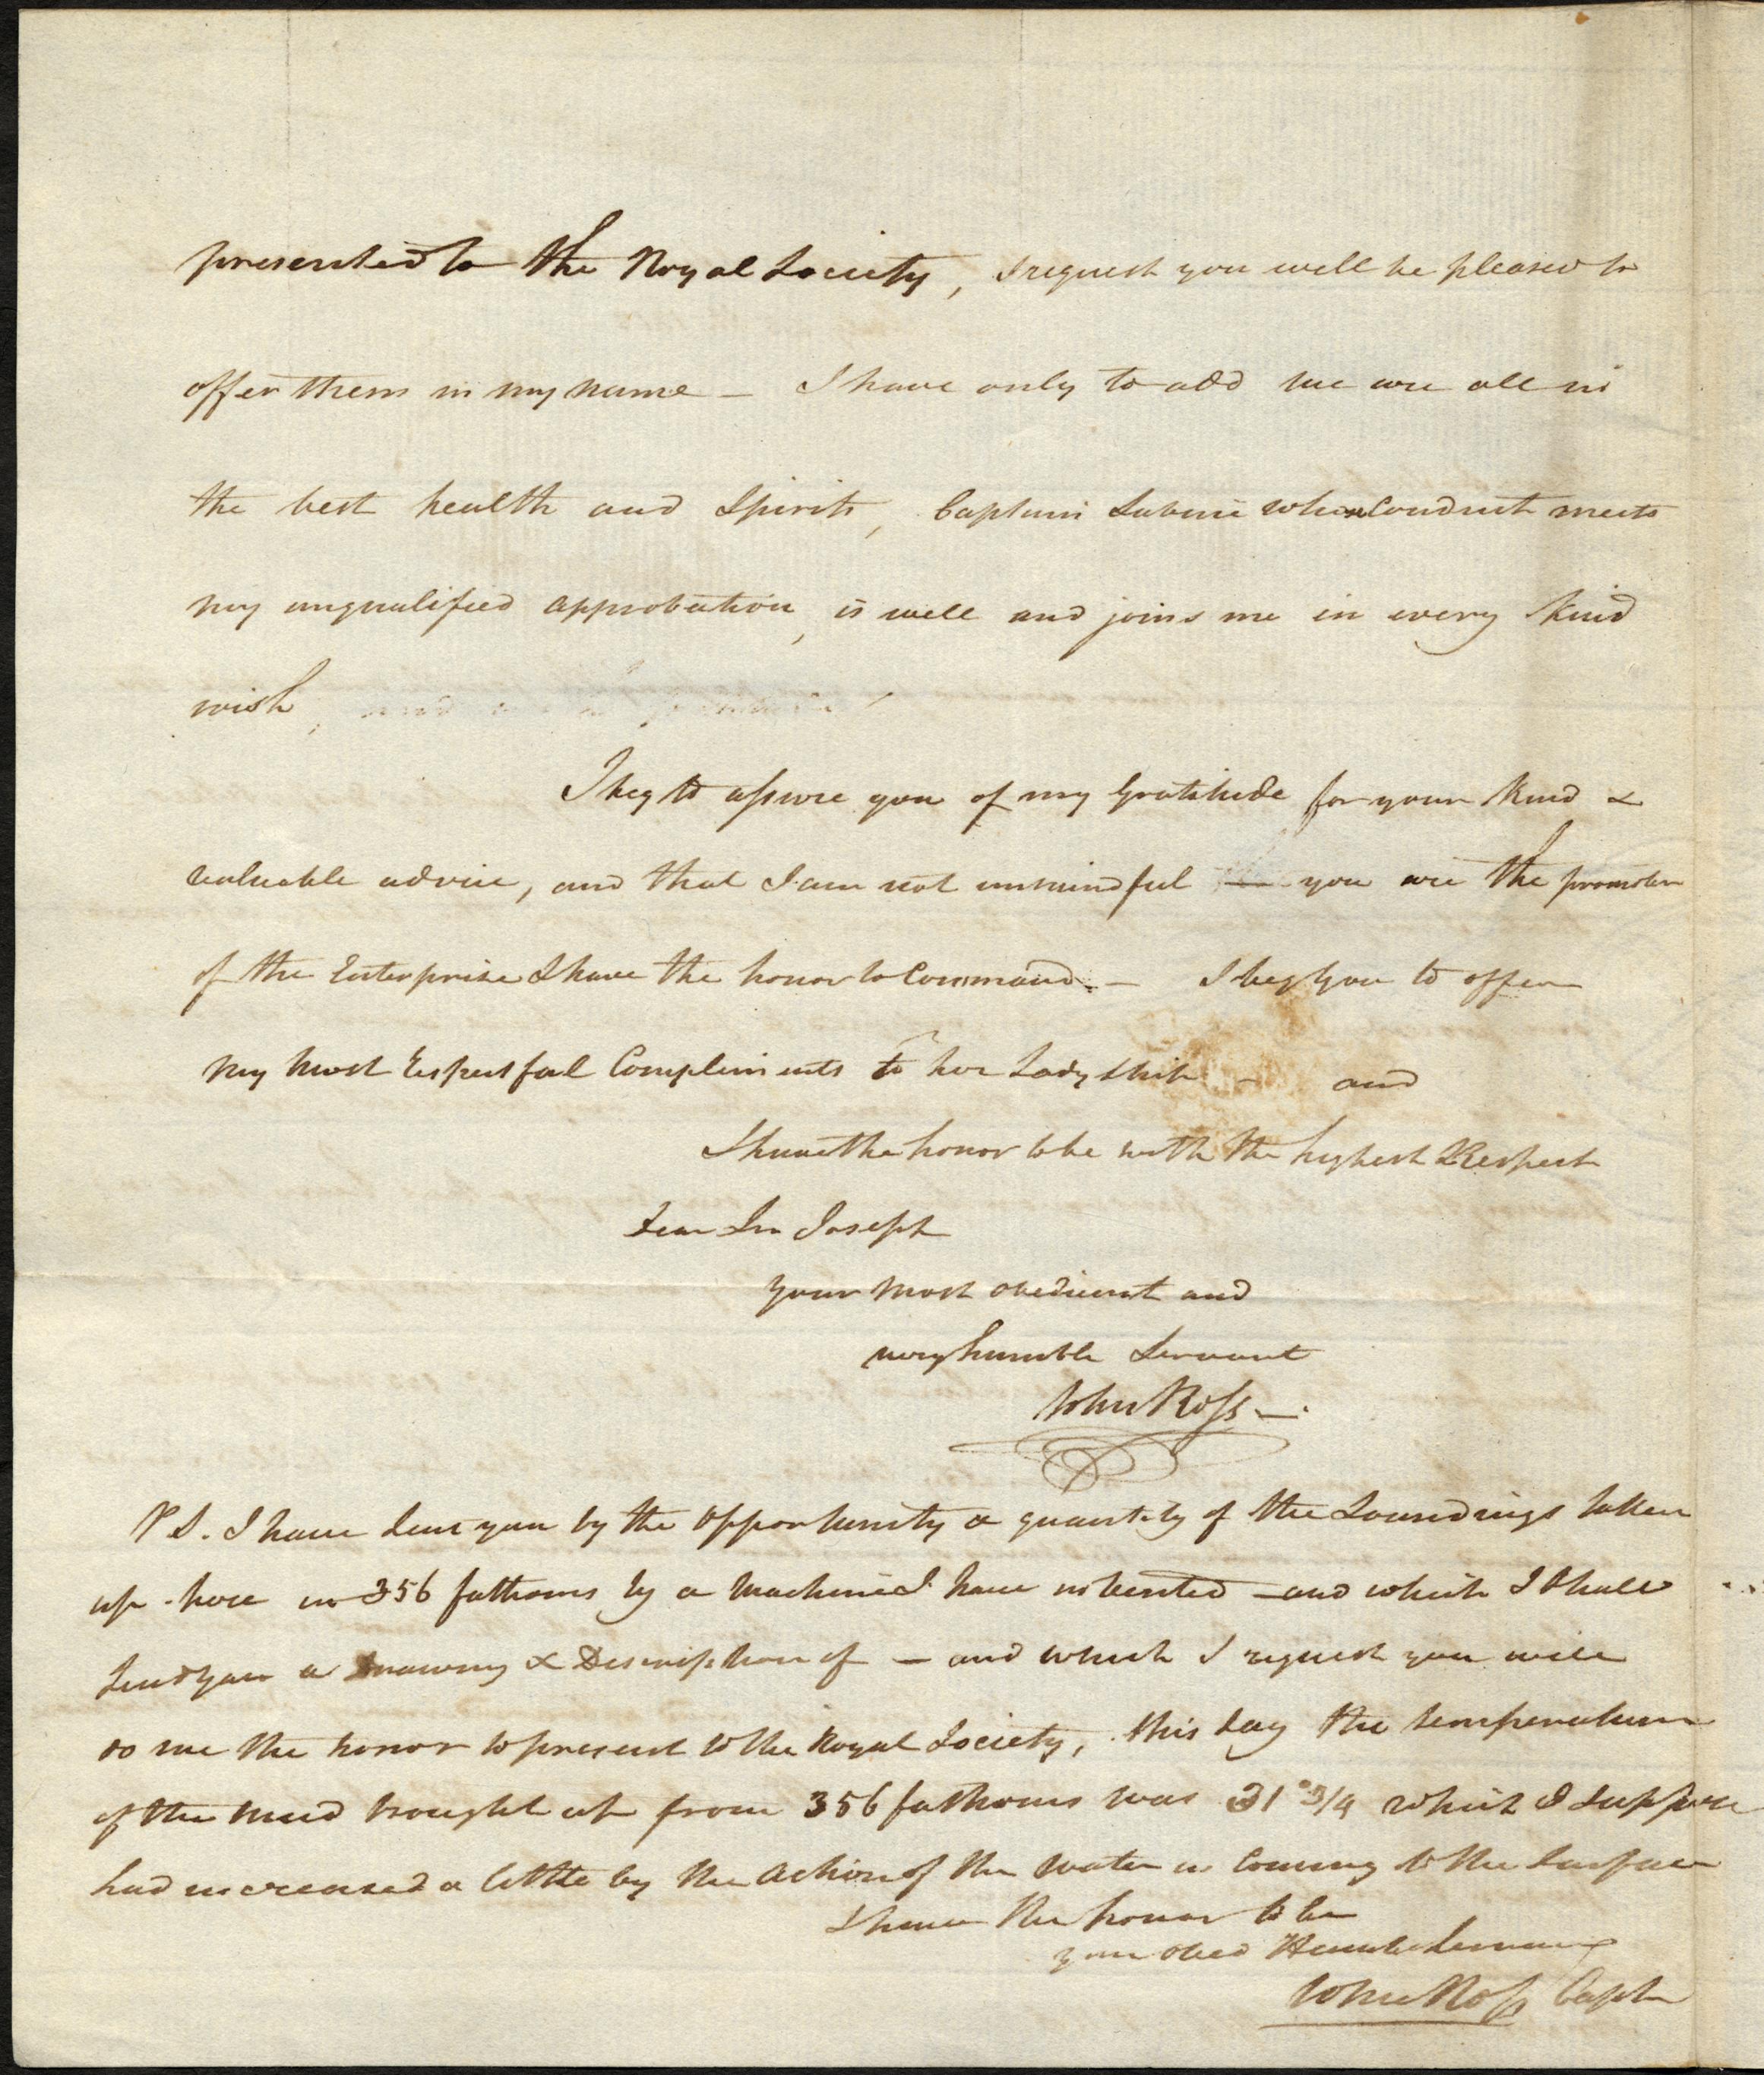 presented to the Royal Society, I request you will be pleased to
offer them in my name — I have only to add we are all in
the best health and Spirits, Captain Sabine whose Conduct meets
my unqualified approbation, is well and joins me in every kind
wish,
I beg to assure you of my Gratitude for your kind &
valuable advice, and that I am not unmindful — you are the promoter
of the Enterprise I have the honor to Command. — I beg you to offer
my most Respectful Compliments to her Ladyship — and
I have the honor to be with the highest Respect
Dear Sir Joseph
your most obedient and
very humble Servant
John Ross —.
P S. I have sent you by the opportunity a quantity of the Soundings taken
up here in 356 fathoms by a Machine I have invented — and which I shall
send you a Drawing & Description of — and which I request you will
do me the honor to present to the Royal Society, this day the temperature
of the Mud brought up from 356 fathoms was 31°3/4 which I suppose
had increased a little by the Action of the Water in Coming to the Surface
I have the honor to be
your obed Humble Servant
John Ross Captn